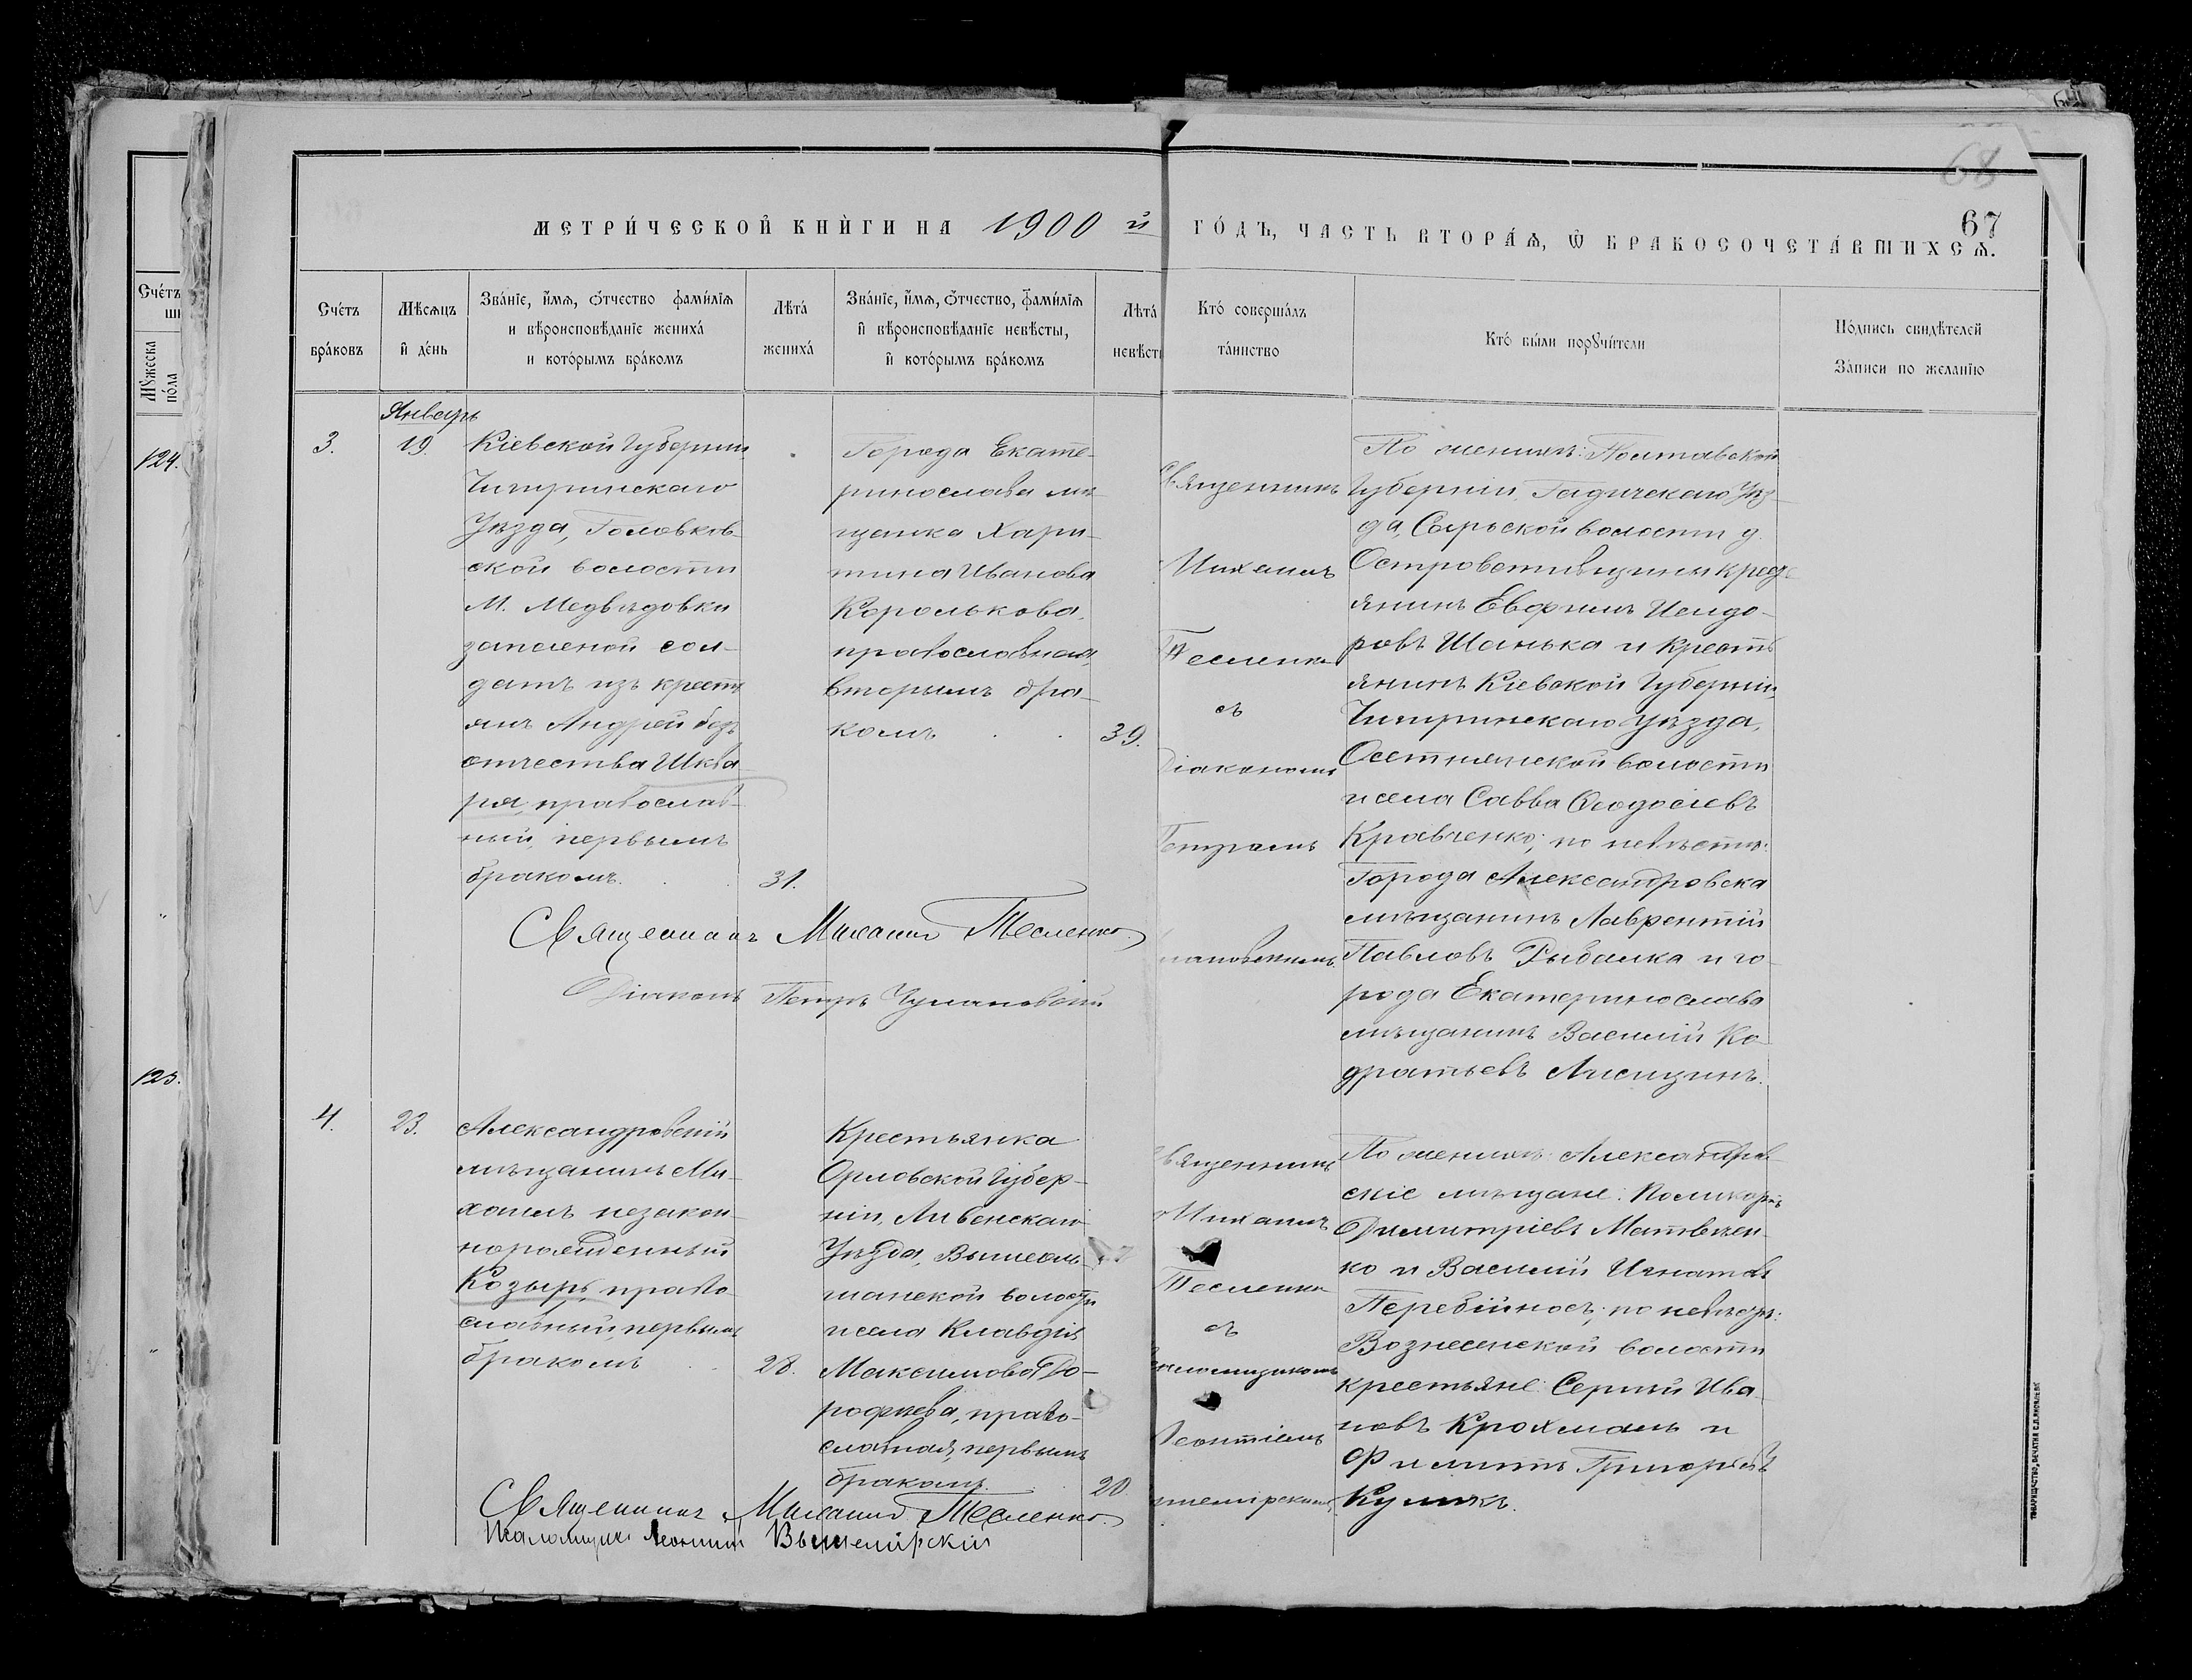 68
67
МЕТРИ́ЧЕСКОЙ КНИ́ГИ НА 1900 й ГО́ДЪ, ЧАСТЬ ВТОРА́Ѧ, Ѽ БРАКОСОЧЕТА́ВШИХСѦ.
Сче́тъ
Мꙋ́жеска по́ла
124.
125.
Сче́тъ бра́ковъ
Мѣ́сѧцъ и де́нь
Зва́нїе, и́мѧ, ѻ́тчество фами́лїѧ
и вѣроисповѣ́данїе жениха́
и кото́рымъ бра́комъ
Лѣ́та жениха́
Зва́нїе, и́мѧ, ѻ́тчество, фами́лїѧ
и вѣроисповѣ́данїе невѣ́сты,
и кото́рымъ бра́комъ
Лѣ́та невѣ́сты
Кто́ соверша́лъ
та́инство
Кто́ бы́ли порꙋчи́тели
По́дпись свидѣ́телей
За́писи по жела́нїю
3.
Январь
19.
Кіевской Губерніи
Чигиринскаго
Уѣзда, Головков-
ской волости
М. Медвѣдовки
запасной сол-
датъ изъ кресть
янъ Андрей безъ
отчества Шква-
ря, православ-
ный, первымъ
бракомъ.
31.
Города Екате-
ринослава мѣ
щанка Хари-
тина Иванова
Королькова,
православная,
вторымъ бра-
комъ
39.
Священникъ
Михаилъ
Тесленко
съ
Діакономъ
Петромъ
По женихѣ: Полтавской
Губерніи, Гадячскаго Уѣз-
да, Сарской волости д.
крест
янинъ Евфимъ Исидо-
ровъ Шанька и кресть
янинъ Кіевской Губерніи
Чигиринскаго Уѣзда,
Осетнянской волости
и села Савва Ѳеодосіевъ
Кравченко; по невѣстѣ:
Города Александровска
мѣщанинъ Лаврентій
Павловъ Рыбалка и го-
рода Екатеринослава
мѣщанинъ Василій Ко-
дратьевъ Лисицинъ.
Священникъ Михаилъ Тесленко.
Діаконъ Петръ Чулановскій
4.
23.
Александровскій
мѣщанинъ Ми-
хаилъ незакон-
норожденный
Козырь, право-
славный, первымъ
бракомъ
28.
Крестьянка
Орловской Губер-
ніи, Ливенскаго
Уѣзда, Вышеоль-
шанской волости
и села Клавдія
Максимова До-
рофеева, право-
славная, первымъ
бракомъ.
20.
Священникъ
Михаилъ
Тесленко
съ
Псаломщикомъ
Леонтіемъ
По женихѣ: Александров-
скіе мѣщане: Поликарпъ
Димитріевъ Матвѣен-
ко и Василій Игнатьевъ
Перебійносъ; по невѣстѣ:
Вознесенской волости
крестьяне: Сергій Ива-
новъ Крохмаль и
Филиппъ Григорьевъ
Куликъ.
Священникъ Михаилъ Тесленко.
Псаломщикъ Леонтій Вышемірскій